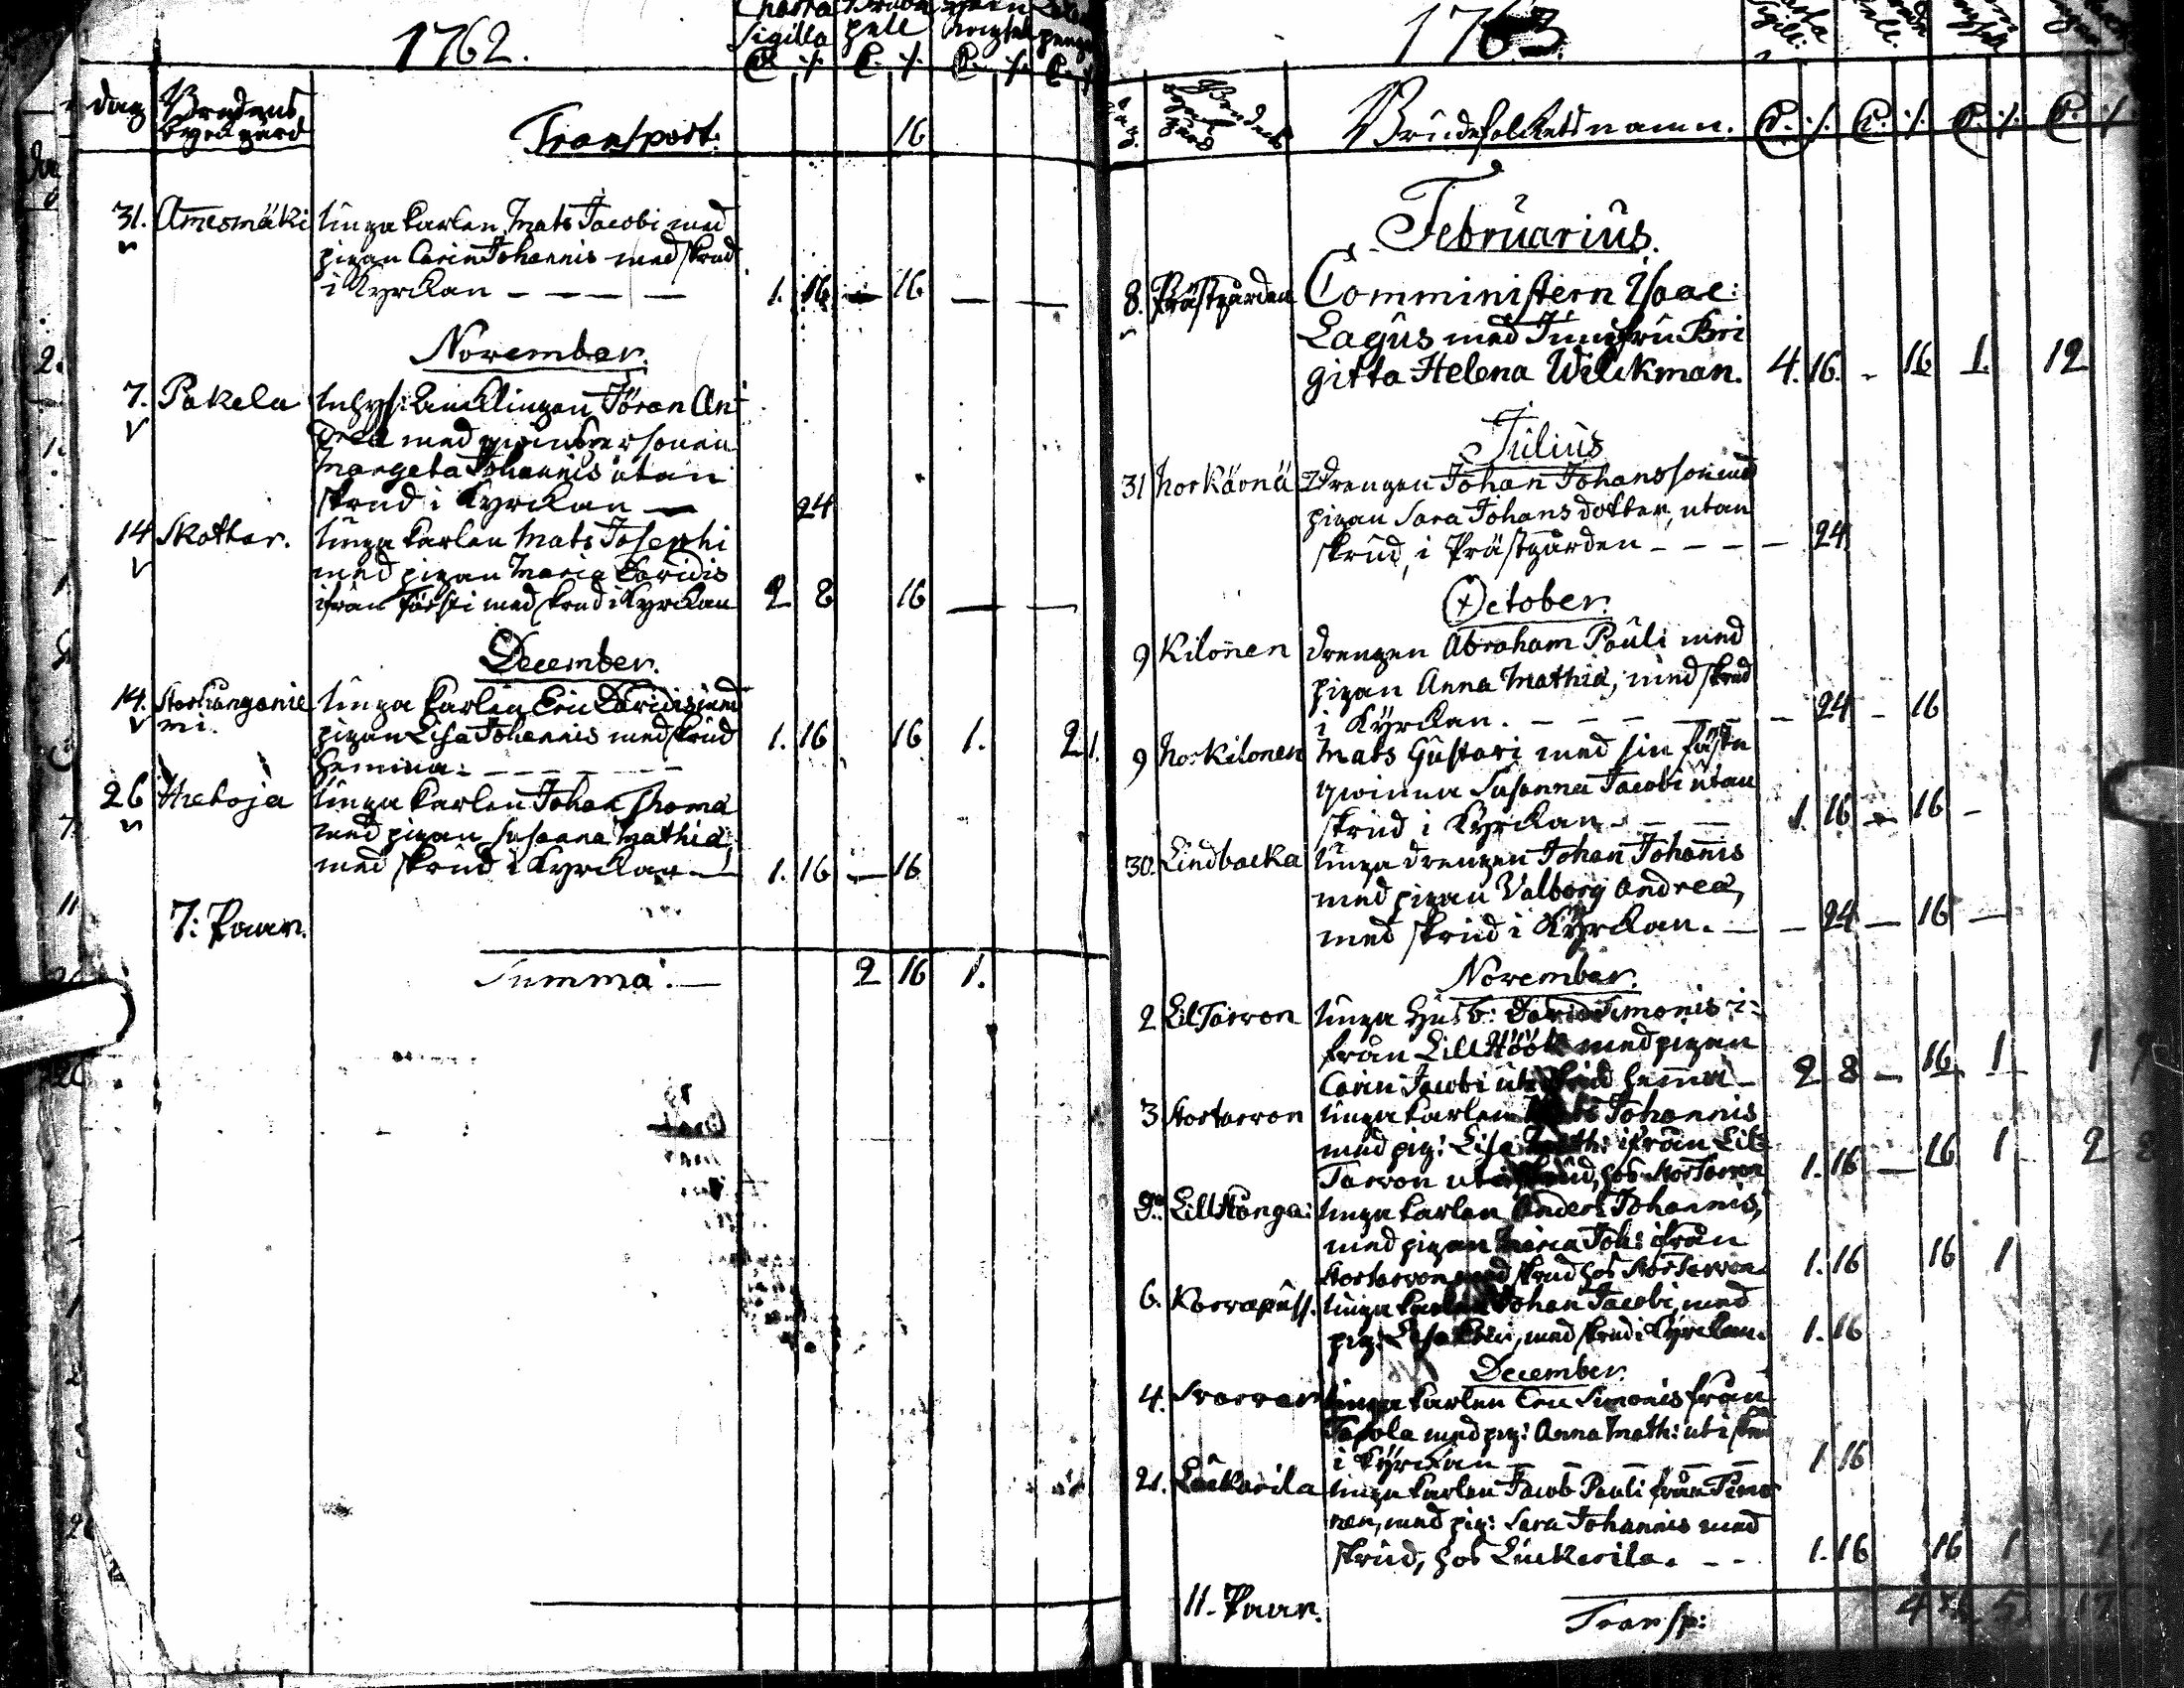 1762.
Charta Sigilla
pell
dag
Brudens by och gård
Transport.
16
31. Annesmäki Unga karlen Mats Jacobi med
pigan Carin Johannis med skrud
i Kyrckan - - - - 1. 16 - 16 - -
November.
7. Pakela Inhyses Enklingen Jöran An-
dreæ med qvinspersonen
Margeta Johannis utan
skrud i Kyrckan - 24
14 Skottar. Unga karlen Mats Josephi
med pigan Maria Davidis
ifrån med skrud i Kyrckan 2 8 16 - -
December.
14. Storhanganie
mi. Unga karlen Eric Davidis med
pigan Lisa Johannis med skrud
hemma. - - - - 1. 16 16 1. 21.
26 Hretoja Unga karlen Johan Thomæ
med pigan Susanna Mathiæ,
med skrud i Kyrckan - 1. 16 - 16
7: Paar.
Summa. - 2 16 1.
1763.
Brudens by och gård
Brudefolketsnamn.
Februarius.
8. Prästgården Comministern Isaac:
Lagus med Jungfru Bri
gitta Helena Wilckman. 4. 16. - 16 1. 12
Julius
31 Norkäönä Drengen Johan Johansson med
pigan Sara Johans dotter, utan
skrud, i Prästgården - - - - 24
October.
9 Kilonen Drengen Abraham Pauli med
pigan Anna Mathiæ, med skrud
i Kyrckan. - - - - 24 - 16
9 Nor Kilonen Mats Gustavi med sin fäste
qwinna Susanna Jacobi utan
skrud i Kyrckan - - - 1. 16 - 16 -
30. Lindbacka Unga drengen Johan Johannis
med pigan Valborg Andreæ,
med skrud i Kyrckan. - - 24 - 16 -
November.
2 LilTarvon Unga Husb: David Simonis i-
från Lill Höök med pigan
Carin Jacobi uti skrud hemma - 2 8 - 16 1 1
3 Stortarvon Unga karlen Mats Johannis
med pig: Lisa Math: ifrån Lil
Tarvon uti skrud, hos StorTarvon 1. 16 - 16 1 2 8
Do. Lill Hånga: Unga karlen Anders Johannis,
med pigan Maria Joh: ifrån
Stortarvon med skrud hos StorTarvon 1. 16 16 1
6. Korvapuss. Unga karlen Johan Jacobi, med
pig: Lisa Eric, med skrud i Kyrckan. 1. 16
December.
4. Svarvar Unga karlen Eric Simonis från
Tapola med pig: Anna Math: uti skrud
i Kyrckan - - - - 1 16
21. Luckarila Unga karlen Jacob Pauli från Timo
nen, med pig: Sara Johannis med
skrud, hos Luckarila. - - 1. 16 16 1
11. Paar.
Transp: 4 5 17